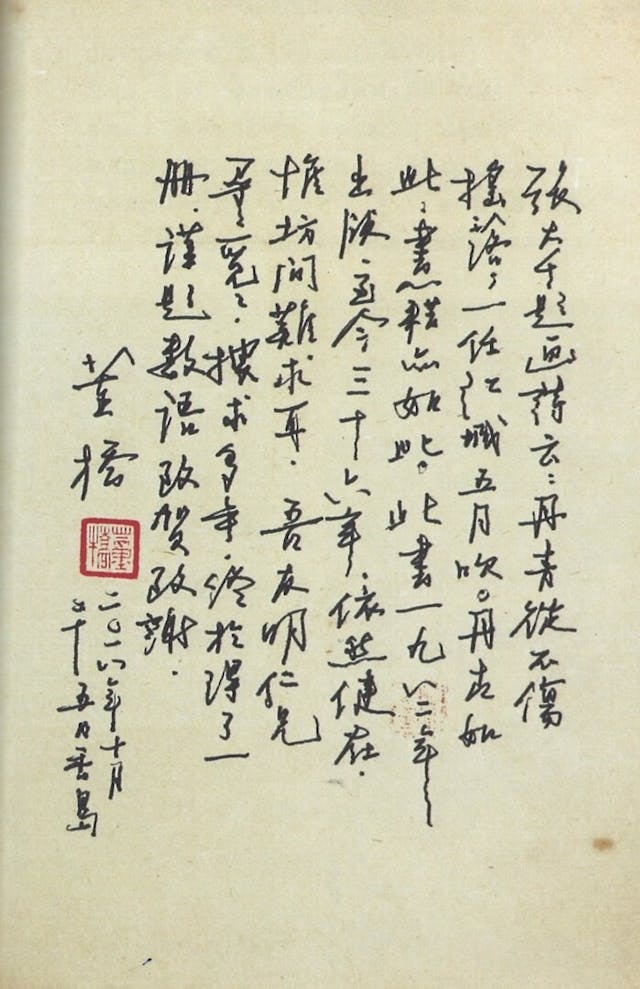 張大千題画詩云：丹青從不傷
搖落，一任江城五月吹。丹青如
此，書籍亦如此。此書一九八二年
出版，至今三十六年，依然健在，
惟坊間難求耳。吾友明仁兄
尋〻覓〻，搜求多年，終於得了一
册，謹題數語致賀致謝。
董橋
董橋
二〇一八年十月
十五日香島